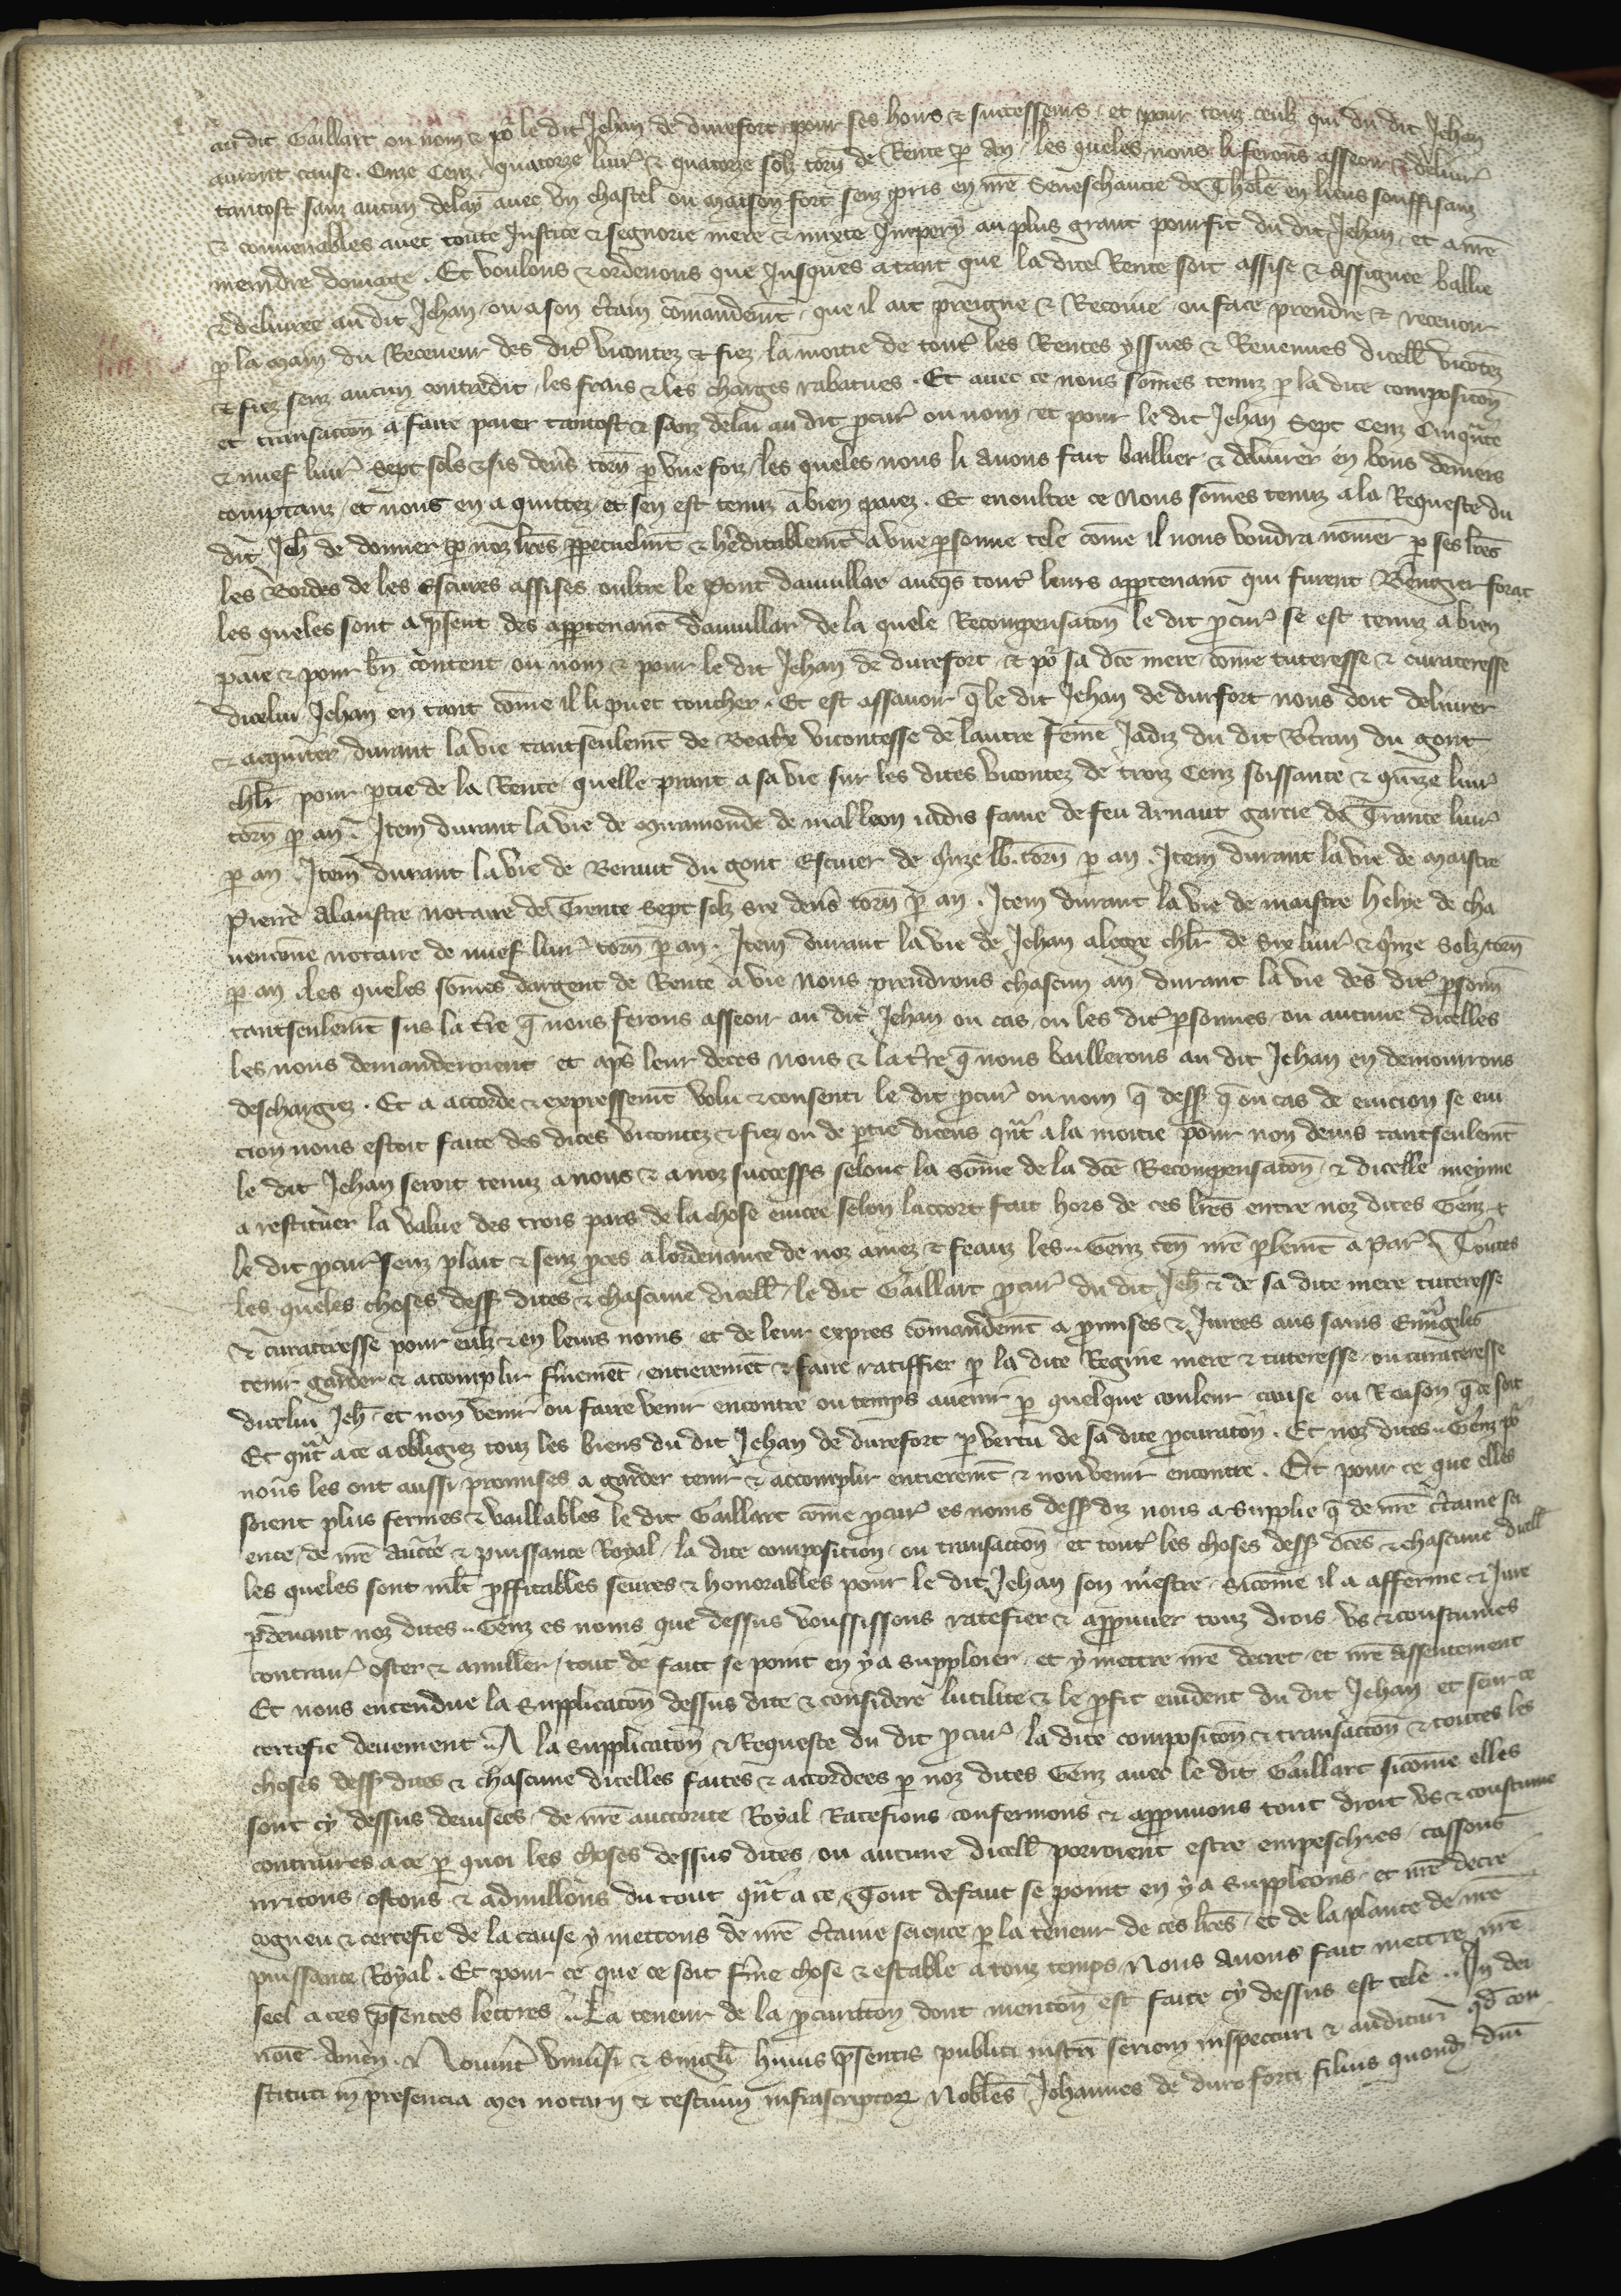 au dit Gaillart ou nom & pᵒ le dit Jehan de durefort pour ses hoirs & successeurs, et pour touz ceulz qui du dit Jehan
auront cause. Onze Cenz quatorze liur̉ & quatorze solz torn̄ de Rente ꝑ An, les queles nous li ferons asseoir & deliur̉
tantost sanz aucun delay auec vn chastel ou maison fort senz pris en nr̄e Seneschaucie de Thēle en lieus souffisanz
& conuenables auec toute Justice & segnorie mere & mixte Impery au plus grant pourfit du dit Jehan, et a nr̄e
meindre domage. Et voulons & ordenons que Jusques a tant que la dite Rente soit assise & assignee baillie
& deliuree au dit Jehan, ou a son c̄tain cōmandemt̄, que il ait preigne & Recoiue ou face prendre & receuoir
ꝑ la main du Receueur des dit̉ vicontez & fiez la moitie de tout̉ les Rentes yssues & Reuenues dicell̄ vicōtez
& fiez senz aucun contredit, les frais & les charges rabatues. Et auec ce nous sōmes tenuz ꝑ la dite composicōn
et transaccōn a faire paier tantost & sanz delai au dit ꝓcur̉ ou nom et pour le dit Jehan Sept Cenz Cinqᵃ̄te
& nuef liur̉ Sept sols & sis den̄s torn̄ ꝑ vne foiz, les queles nous li auons fait baillier & deliurer en bons deniers
comptanz, et nous en a quittez, et sen est tenuz a bien paiez. Et en oultre ce Nous sōmes tenuz a la Requeste du
dit Jeh̄ de donner ꝑ noz lr̄es ꝑpetuelmt̄ & h̄editablemt̄ a vne ꝑsonne tele cōme il nous voudra nōmer ꝑ ses lr̄es
les Bordes de les Escures assises oultre le Pont dauuillar auecqs tout̉ leurs apꝑtenanc̄ qui furent Bengier forac
les queles sont a p̄sent des apꝑtenanc̄ dauuillar, de la quele Recompensacōn le dit ꝓcur̉ se est tenuz a bien
paie & pour bn̄ content, ou nom & pour le dit Jehan de durefort, & pᵒ sa dc̄e mere, cōme tuteresse & curateresse
dicelui Jehan en tant cōme il li puet toucher. Et est assauoir q̄ le dit Jehan de durfort nous doit deliurer
& acquiter, durant la vie tantseulemt̄ de Beatx̄ vicontesse de lautre feme Jadiz du dit B̄tran du gout
chl̄r pour ꝑtie de la Rente, quelle prant a sa vie sur les dites vicontez de troiz Cenz soissante & qⁱnze liur̉
torn̄ ꝑ an. Item durant la vie de Miramonde de mal leon iadis fame de feu Arnaut garcie de Trante liur̉
ꝑ an. Item durant la vie de Bernut du gout Escuier de qⁱnze lb. torn̄ ꝑ an. Item durant la vie de maistre
Pierre Alaustre notaire de Trente Sept solz sis den̄s torn̄ ꝑ an. Item durant la vie de maistre helye de cha
uencōne notaire de nuef liur̉ torn̄ ꝑ an. Item durant la vie de Jehan alegre chl̄r de Six liur̉ & qⁱnze Solz torn̄
ꝑ an, les queles sōmes dargent de Rente a vie nous prendrons chascun an durant la vie des dit̉ ꝑsonn̄
tantseulemt̄ sus la t̄re q̄ nous ferons asseoir au dit Jehan ou cas, ou les dit̉ ꝑsonnes, ou aucune dicelles
les nous demanderoient, et aps̄ leur deces nous & la t̄re q̄ nous baillerons au dit Jehan en demourrons
deschargiez. Et a accorde & expressemt̄ volu & consenti le dit ꝓcur̉ ou nom q̄ dess9 q̄ ou cas de euicion se eui
cion nous estoit faite des dites vicontez & fiez ou de ꝑtie diceus qᵃ̄t a la moitie pour non deuis tantseulemt̄
le dit Jehan seroit tenuz a nous & a noz successr̄s selonc la sōme de la dc̄e Recompensacōn, & dicelle meyme
a restituer la value des trois pars de la chose euicee selon laccort fait hors de ces lr̄es entre noz dites Genz &
le dit ꝓcur̉ senz plait & senz ꝓces a lordenance de noz amez & feauz les .. Genz ten̄ nr̄e plemt̄ a Par̉. Toutes
les queles choses dess9 dites & chascune dicell̄, le dit Gaillart ꝓcur̉ du dit Jeh̄ & de sa dite mere tuteresse
& curateresse pour eulz & en leurs noms, et de leur expres cōmandemt̄ a ꝓmises & Jurees aus sains Euuāgiles
tenir garder & accomplir fermemt̄, entieremt̄ & faire ratiffier ꝑ la dite Regine mere & tuteresse, ou curateresse
dicelui Jeh̄, et non venir ou faire venir encontre ou temps auenir ꝑ quelque couleur cause ou Reison q̄ ce soit
Et qᵃ̄t a ce a obligiez touz les biens du dit Jehan de durefort ꝑ vertu de sa dite ꝓcuracōn. Et noz dites .. Genz pᵒ
nous les ont aussi promises a garder tenir & accomplir entieremt̄ & non venir encontre. Et pour ce que elles
soient plus fermes & vaillables le dit Gaillart cōme ꝓcur̉ es noms dess9 diz nous a Supplie q̄ de nr̄e c̄taine sci
ence, de nr̄e auct̄e & puissance Royal, la dite composicion, ou transaccōn, et tout̉ les choses dess9 dc̄es & chascune dicell̄
les queles sont ml̄t ꝓffitables seures & honorables pour le dit Jehan son mestre, sicōme il a afferme & Jure
ꝑdeuant noz dites .. Genz es noms que dessus voussissons ratefier & appruuer touz drois vs & coustumes
contrair̉ oster & anuller, tout de fait se point en y a supploier, et y mettre nr̄e decret et nr̄e assentement
Et nous entendue la Supplicacōn dessus dite & considere lutilite & le ꝓfit euident du dit Jehan et seur ce
certefie deuement .. A la supplicacōn & Requeste du dit ꝓcur̉ la dite composicōn & transaccōn & toutes les
choses dess9 dites & chascune dicelles faites & accordees ꝑ noz dites Genz auec le dit Gaillart sicōme elles
sont cy dessus deuisees, de nr̄e auctorite Royal Ratefions confermons & appruuons tout droit vs & coustume
contraires a ce ꝑ quoi les choses dessus dites ou aucune dicell̄ porroient estre empeschies, cassons
irritons, ostons & adnullons du tout qᵃ̄t a ce, Tout defaut se point en y a suppleons, et nr̄e decre
cogneu & certefie de la cause y mettons de nr̄e c̄taine science ꝑ la teneur de ces lr̄es, et de la plante de nr̄e
puissance Royal. Et pour ce que ce soit f̄me chose & estable a touz temps, Nous auons fait mettre nr̄e
seel a ces p̄sentes lettres .. La teneur de la ꝓcuracōn dont mencōn est faite cy dessus est tele .. In dei
noīe Amen. Nouint̄ vniu̅si & singl̄i huius p̄sentis publici instrī seriem inspecturi & audituri qd̄ con
stituti in presencia mei notarii & testium infrascriptoꝝ Nobl̄es Johannes de duro forti filius quondꝫ dn̄i